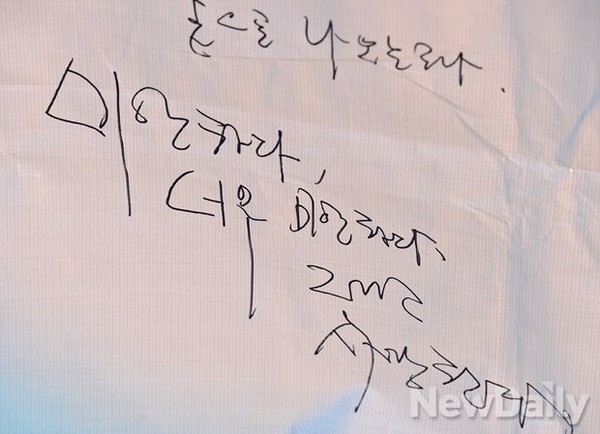 미안하다,
너무 미안하다.
그리고
사랑한다.
NewDaily